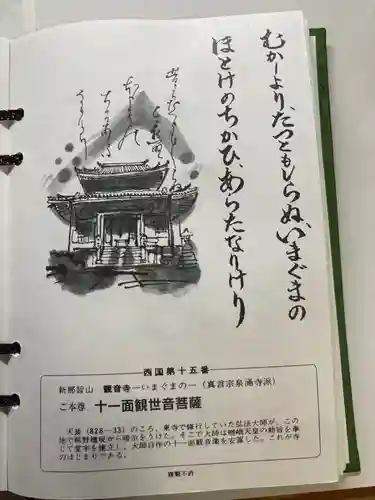 むかしより、たつともしらぬ、いまぐまの
ほとけのちかひ、あらたなりけり
西国第十五番
新那智山 観音寺―いまぐまの―（真言宗泉涌寺派）
ご本尊 十一面観世音菩薩
天長（828―33）のころ、東寺で修行していた弘法大師が、この
地で熊野権現から暗示をうけた。そこで大師は嵯峨天皇の勅旨を奉
じて堂宇を建立し、大師自作の十一面観音像を安置した。これが寺
のはじまりである。
複製不許